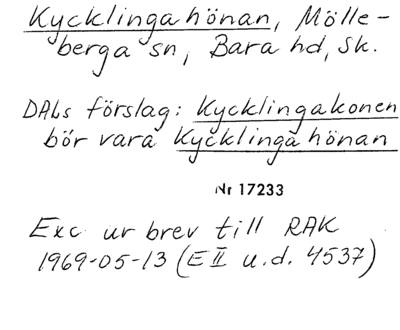 Kycklingahönan, Mölle-
berga sn, Bara hd, Sk.
DALs förslag: Kycklingakonen
bör vara Kycklingahönan
Nr 17233
Exc ur brev till RAK
1969-05-13 (E II u.d. 4537)